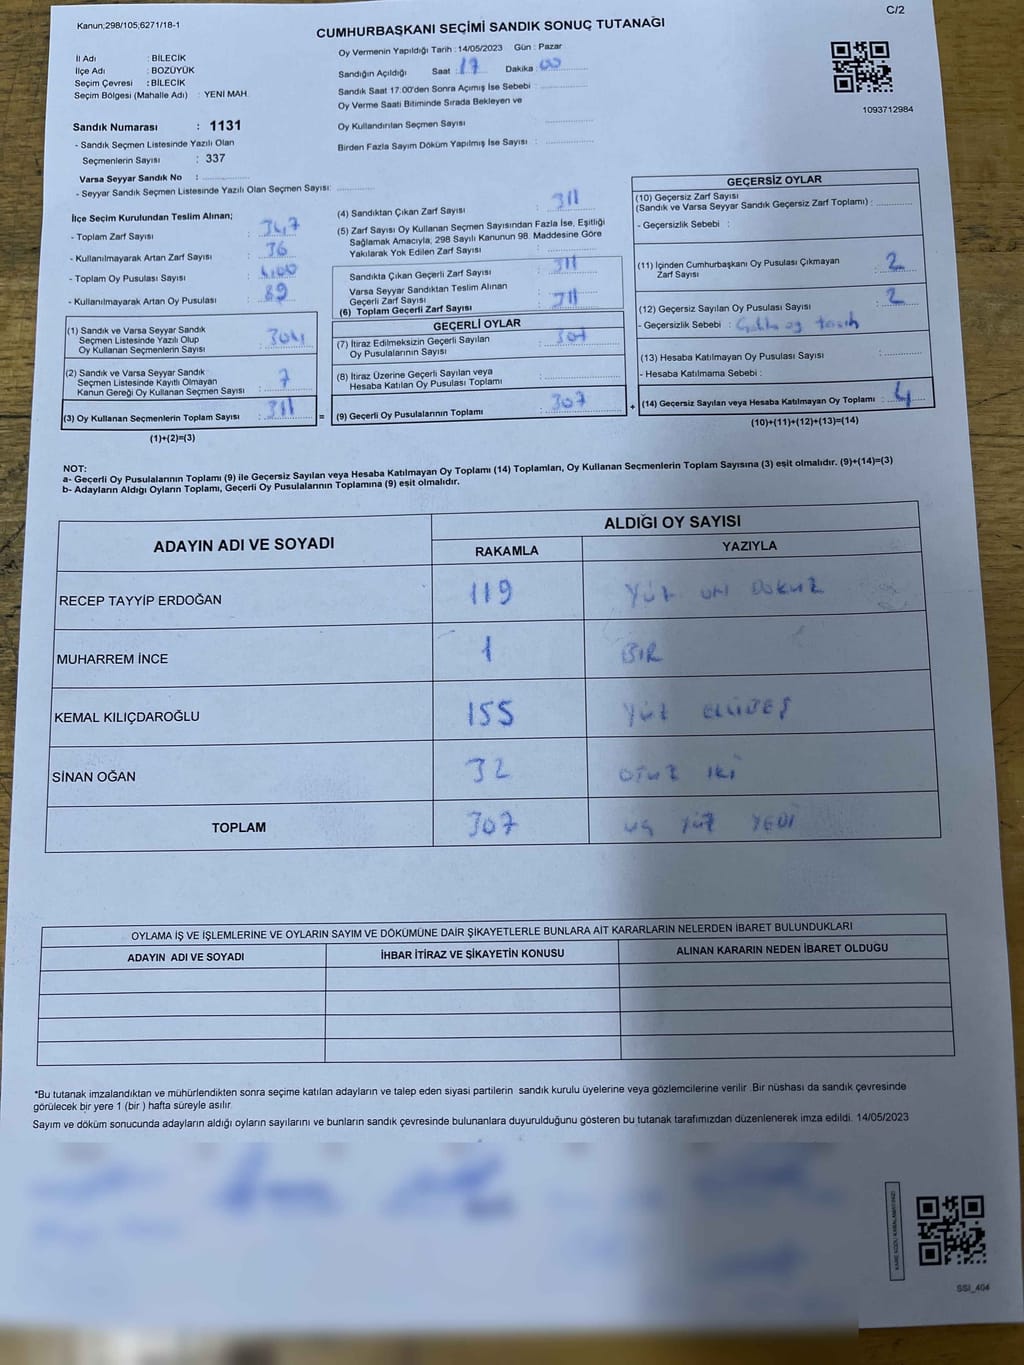 Kanun;298/105;6271/18-1
C/2
CUMHURBAŞKANI SEÇİMİ SANDIK SONUÇ TUTANAĞI
İl Adı : BİLECİK
İlçe Adı : BOZÜYÜK
Seçim Çevresi : BİLECİK
Seçim Bölgesi (Mahalle Adı) : YENİ MAH.
Sandık Numarası : 1131
- Sandık Seçmen Listesinde Yazılı Olan
Seçmenlerin Sayısı : 337
Varsa Seyyar Sandık No :
- Seyyar Sandık Seçmen Listesinde Yazılı Olan Seçmen Sayısı:
Oy Vermenin Yapıldığı Tarih : 14/05/2023 Gün : Pazar
Sandığın Açıldığı Saat : 17 Dakika : 00
Sandık Saat 17:00'den Sonra Açımış İse Sebebi :
Oy Verme Saati Bitiminde Sırada Bekleyen ve
Oy Kullandırılan Seçmen Sayısı
Birden Fazla Sayım Döküm Yapılmış İse Sayısı :
1093712984
İlçe Seçim Kurulundan Teslim Alınan;
- Toplam Zarf Sayısı : 347
- Kullanılmayarak Artan Zarf Sayısı : 36
- Toplam Oy Pusulası Sayısı :
- Kullanılmayarak Artan Oy Pusulası : 89
(1) Sandık ve Varsa Seyyar Sandık
Seçmen Listesinde Yazılı Olup
Oy Kullanan Seçmenlerin Sayısı : 304
(2) Sandık ve Varsa Seyyar Sandık
Seçmen Listesinde Kayıtlı Olmayan
Kanun Gereği Oy Kullanan Seçmen Sayısı : 7
(3) Oy Kullanan Seçmenlerin Toplam Sayısı : 311
(1)+(2)=(3)
=
(4) Sandıktan Çıkan Zarf Sayısı : 311
(5) Zarf Sayısı Oy Kullanan Seçmen Sayısından Fazla İse, Eşitliği
Sağlamak Amacıyla, 298 Sayılı Kanunun 98. Maddesine Göre
Yakılarak Yok Edilen Zarf Sayısı :
Sandıkta Çıkan Geçerli Zarf Sayısı : 311
Varsa Seyyar Sandıktan Teslim Alınan
Geçerli Zarf Sayısı
(6) Toplam Geçerli Zarf Sayısı : 311
GEÇERLİ OYLAR
(7) İtiraz Edilmeksizin Geçerli Sayılan
Oy Pusulalarının Sayısı : 307
(8) İtiraz Üzerine Geçerli Sayılan veya
Hesaba Katılan Oy Pusulası Toplamı :
(9) Geçerli Oy Pusulalarının Toplamı : 307
+
GEÇERSİZ OYLAR
(10) Geçersiz Zarf Sayısı
(Sandık ve Varsa Seyyar Sandık Geçersiz Zarf Toplamı) :
- Geçersizlik Sebebi :
(11) İçinden Cumhurbaşkanı Oy Pusulası Çıkmayan
Zarf Sayısı : 2
(12) Geçersiz Sayılan Oy Pusulası Sayısı : 2
- Geçersizlik Sebebi :
(13) Hesaba Katılmayan Oy Pusulası Sayısı :
- Hesaba Katılmama Sebebi :
(14) Geçersiz Sayılan veya Hesaba Katılmayan Oy Toplamı : 4
(10)+(11)+(12)+(13)=(14)
NOT:
a- Geçerli Oy Pusulalarının Toplamı (9) ile Geçersiz Sayılan veya Hesaba Katılmayan Oy Toplamı (14) Toplamları, Oy Kullanan Seçmenlerin Toplam Sayısına (3) eşit olmalıdır. (9)+(14)=(3)
b- Adayların Aldığı Oyların Toplamı, Geçerli Oy Pusulalarının Toplamına (9) eşit olmalıdır.
ADAYIN ADI VE SOYADI
ALDIĞI OY SAYISI
RAKAMLA YAZIYLA
RECEP TAYYİP ERDOĞAN 119 YÜZ ON DOKUZ
MUHARREM İNCE 1 BİR
KEMAL KILIÇDAROĞLU 155 YÜZ ELLİBEŞ
SİNAN OĞAN 32 OTUZ İKİ
TOPLAM 307 ÜÇ YÜZ YEDİ
OYLAMA İŞ VE İŞLEMLERİNE VE OYLARIN SAYIM VE DÖKÜMÜNE DAİR ŞİKAYETLERLE BUNLARA AİT KARARLARIN NELERDEN İBARET BULUNDUKLARI
ADAYIN ADI VE SOYADI İHBAR İTİRAZ VE ŞİKAYETİN KONUSU ALINAN KARARIN NEDEN İBARET OLDUĞU
*Bu tutanak imzalandıktan ve mühürlendikten sonra seçime katılan adayların ve talep eden siyasi partilerin sandık kurulu üyelerine veya gözlemcilerine verilir. Bir nüshası da sandık çevresinde
görülecek bir yere 1 (bir ) hafta süreyle asılır.
Sayım ve döküm sonucunda adayların aldığı oyların sayılarını ve bunların sandık çevresinde bulunanlara duyurulduğunu gösteren bu tutanak tarafımızdan düzenlenerek imza edildi. 14/05/2023
SSI_404